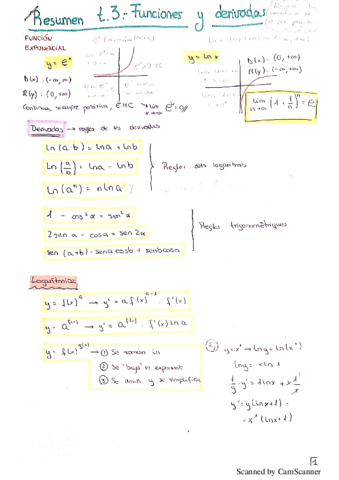 Resumen t.3.- Funciones y derivadas
FUNCIÓN
EXPONENCIAL
y = eˣ
D(x): (-∞, ∞)
R(y): (0, +∞)
y = ln x
D(x): (0, +∞)
R(y): (-∞, +∞)
lim (1 + 1/n)ⁿ = e
n→∞
Continua, siempre positiva,
Derivadas → reglas de las derivadas
ln (a·b) = ln a + ln b
ln (a/b) = ln a - ln b
ln (aⁿ) = n ln a
Reglas logaritmos
1 - cos² α = sen² α
2 sen α - cos α = sen 2α
sen (a+b) = sen a cos b + sen b cos a
Reglas trigonométriques
Logarítmica
y = f(x)ᵃ → y' = a f(x)ᵃ⁻¹ · f'(x)
y = a^f(x) → y' = a^f(x) · f'(x) ln a
y = f(x)^g(x) → ① Se toman ln
② Se "baja" el exponente
③ Se deriva y se simplifica
y = xˣ → ln y = ln (xˣ)
ln y = x ln x
1/y · y' = 1 ln x + x 1/x
y' = y (ln x + 1) =
= xˣ (ln x + 1)
1
Scanned by CamScanner